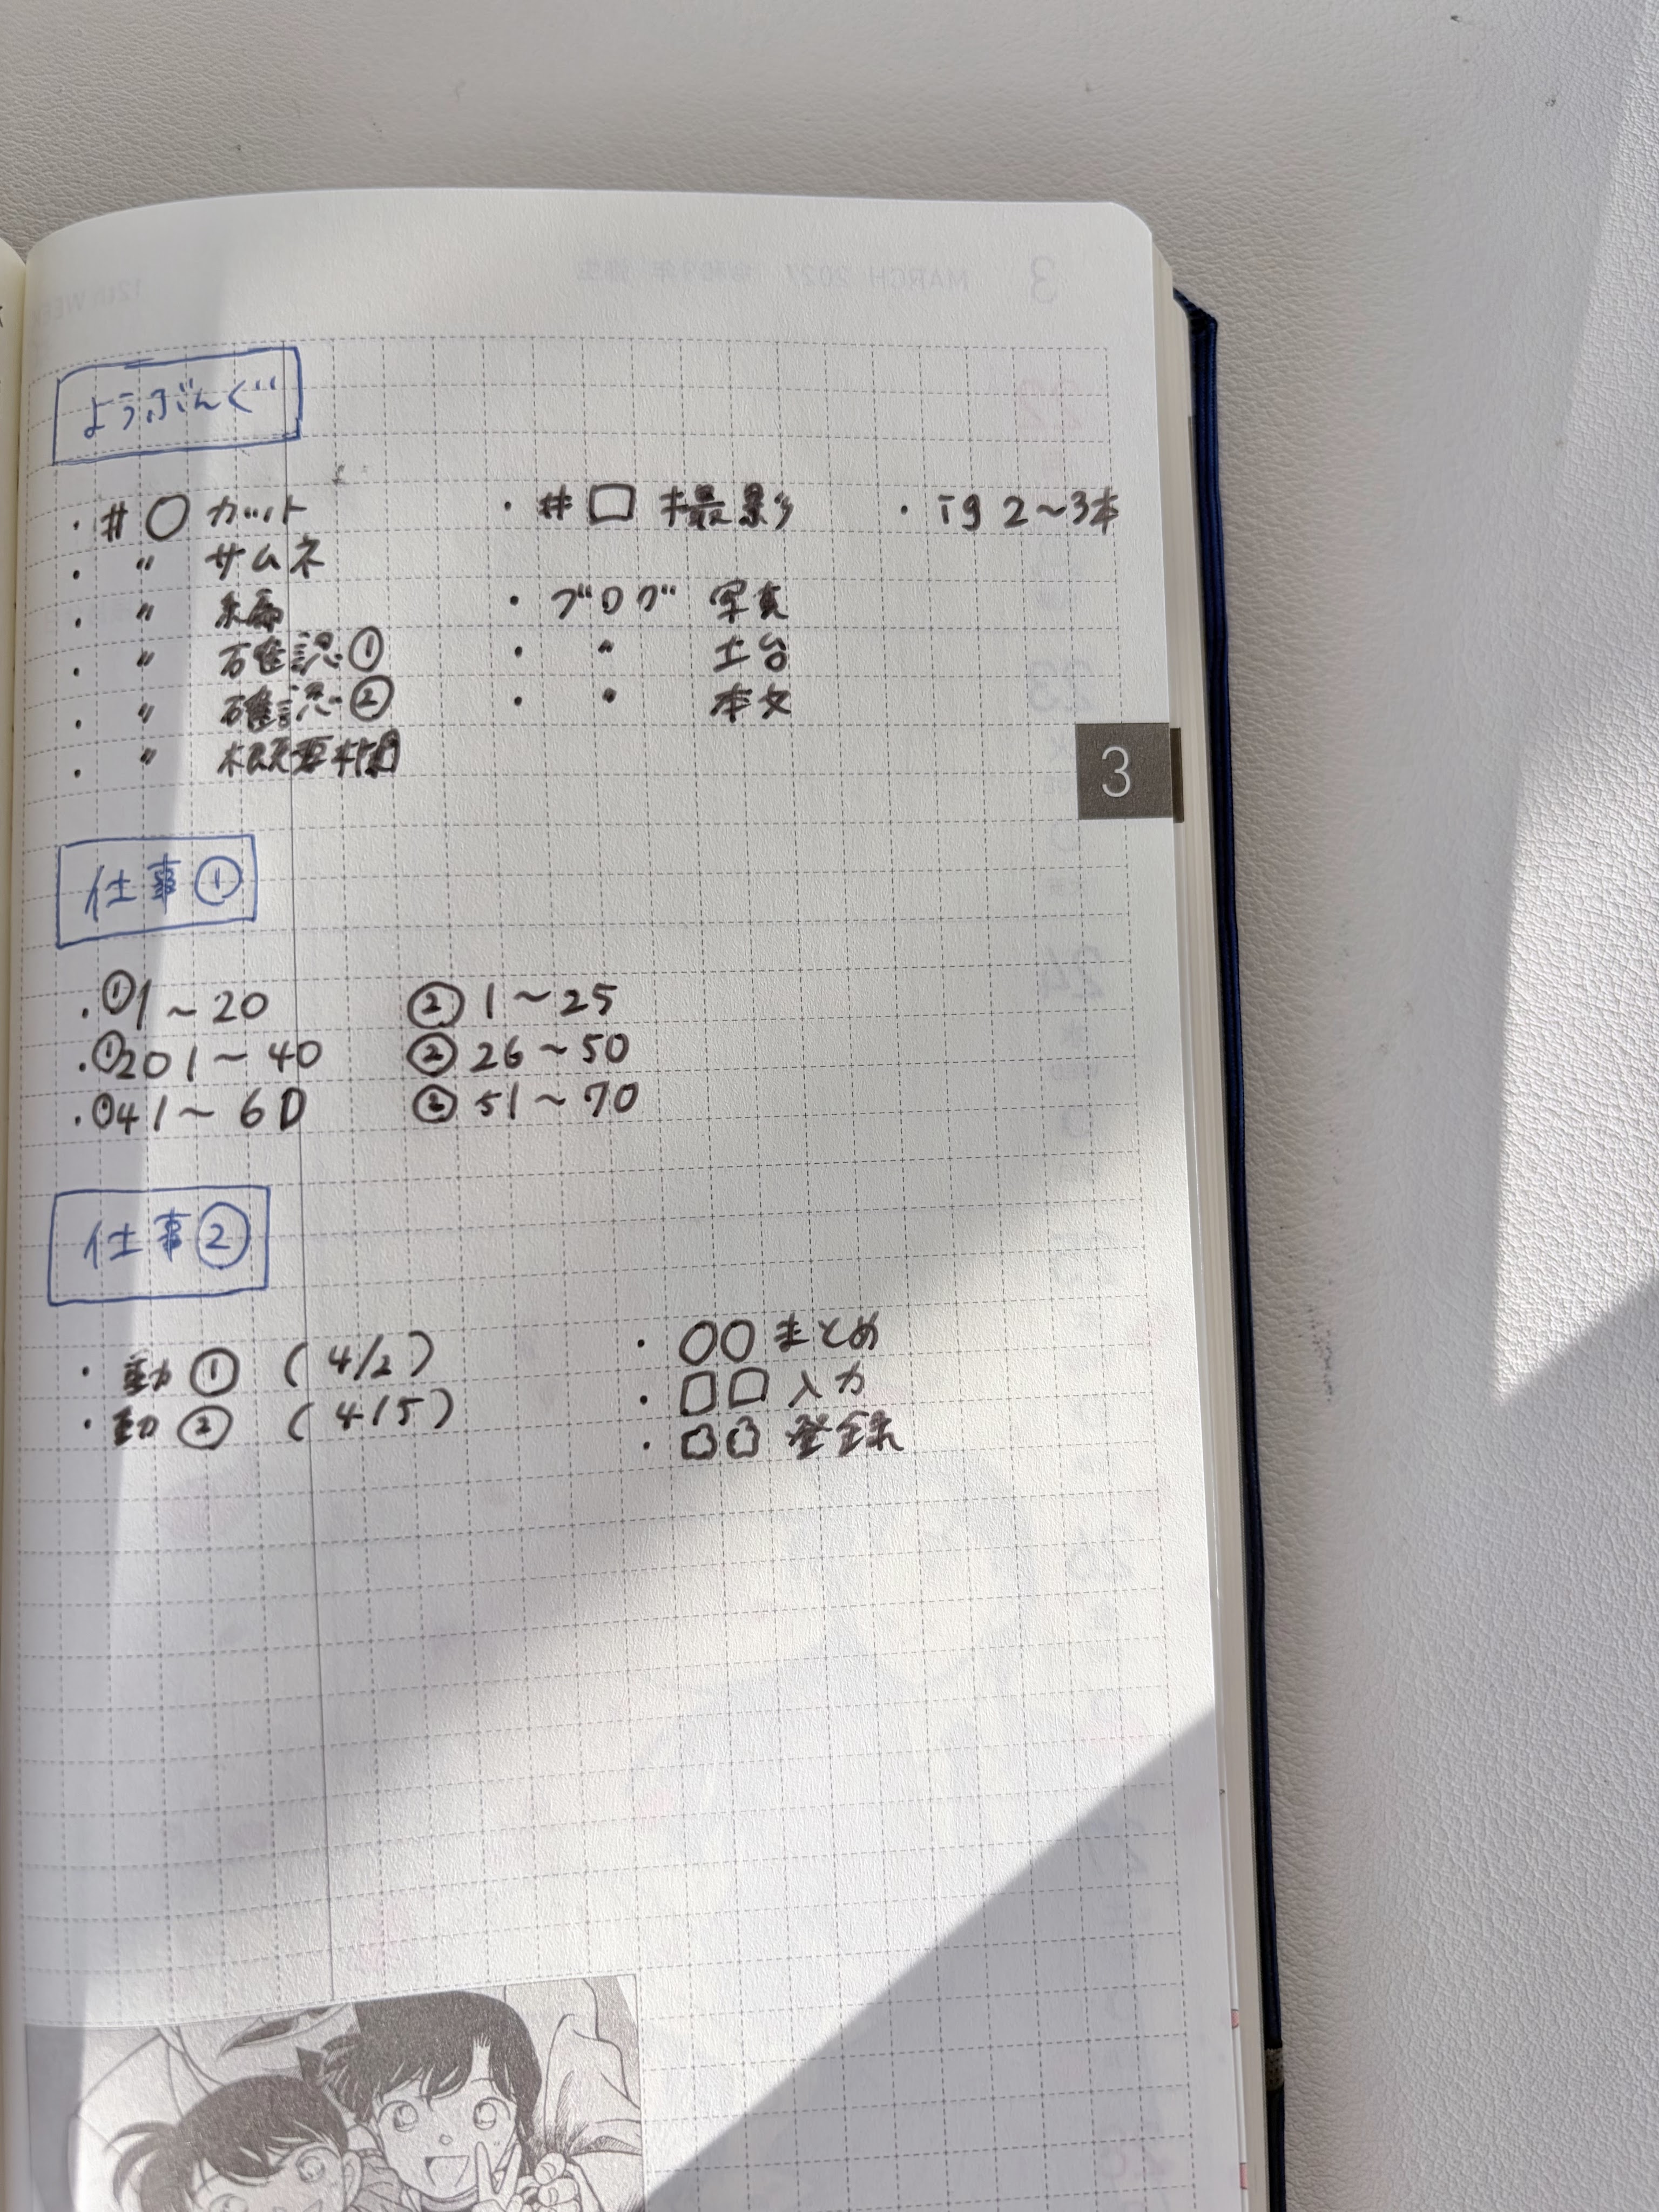 ようぶんぐ
・#○ カット ・#□ 撮影 ・ig 2～3本
・〃 サムネ
・〃 編 ・ブログ 写真
・〃 確認① ・〃 土台
・〃 確認② ・〃 本文
・〃 概要欄
3
仕事①
・①1～20 ②1～25
・①201～40 ②26～50
・①41～60 ②51～70
仕事②
・動① (4/2) ・○○まとめ
・動② (4/5) ・□□入力
・登録